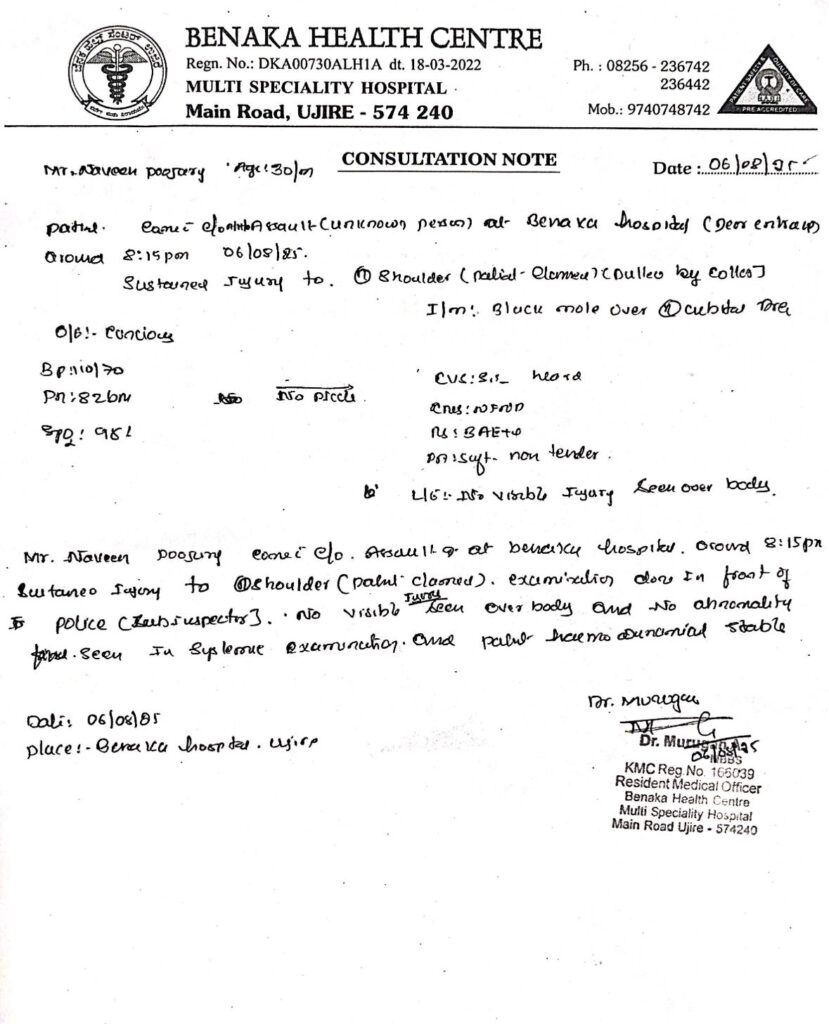 BENAKA HEALTH CENTRE
Regn. No.: DKA00730ALH1A dt. 18-03-2022
MULTI SPECIALITY HOSPITAL
Main Road, UJIRE - 574 240
Ph. : 08256 - 236742
236442
Mob.: 9740748742
PRE ACCREDITED
CONSULTATION NOTE
Mr. Naveen Poojary Age: 30/m
Date : 06/08/25
Assault (unknown person) at Benaka hospital
around 8:15pm 06/08/25.
Sustained Injury to shoulder
I/m: Black mole over cubital
O/E:- Concious
BP: 110/70
PR: 82bm
SPO2: 98%
No
CVS: heard
CNS: NFND
RS: BAE+
PA: Soft non tender.
L/E:- No visible Injury seen over body.
Mr. Naveen Poojary c/o. Assault at benaka hospital. around 8:15pm
Sustained Injury to shoulder examination done In front of
police No visible Injury seen over body and No abnormality
seen In systemic examination. and stable
Date: 06/08/25
place:- Benaka hospital. Ujire
Dr. Murugan
06/08/25
MBBS
KMC Reg.No. 165039
Resident Medical Officer
Benaka Health Centre
Multi Speciality Hospital
Main Road Ujire - 574240